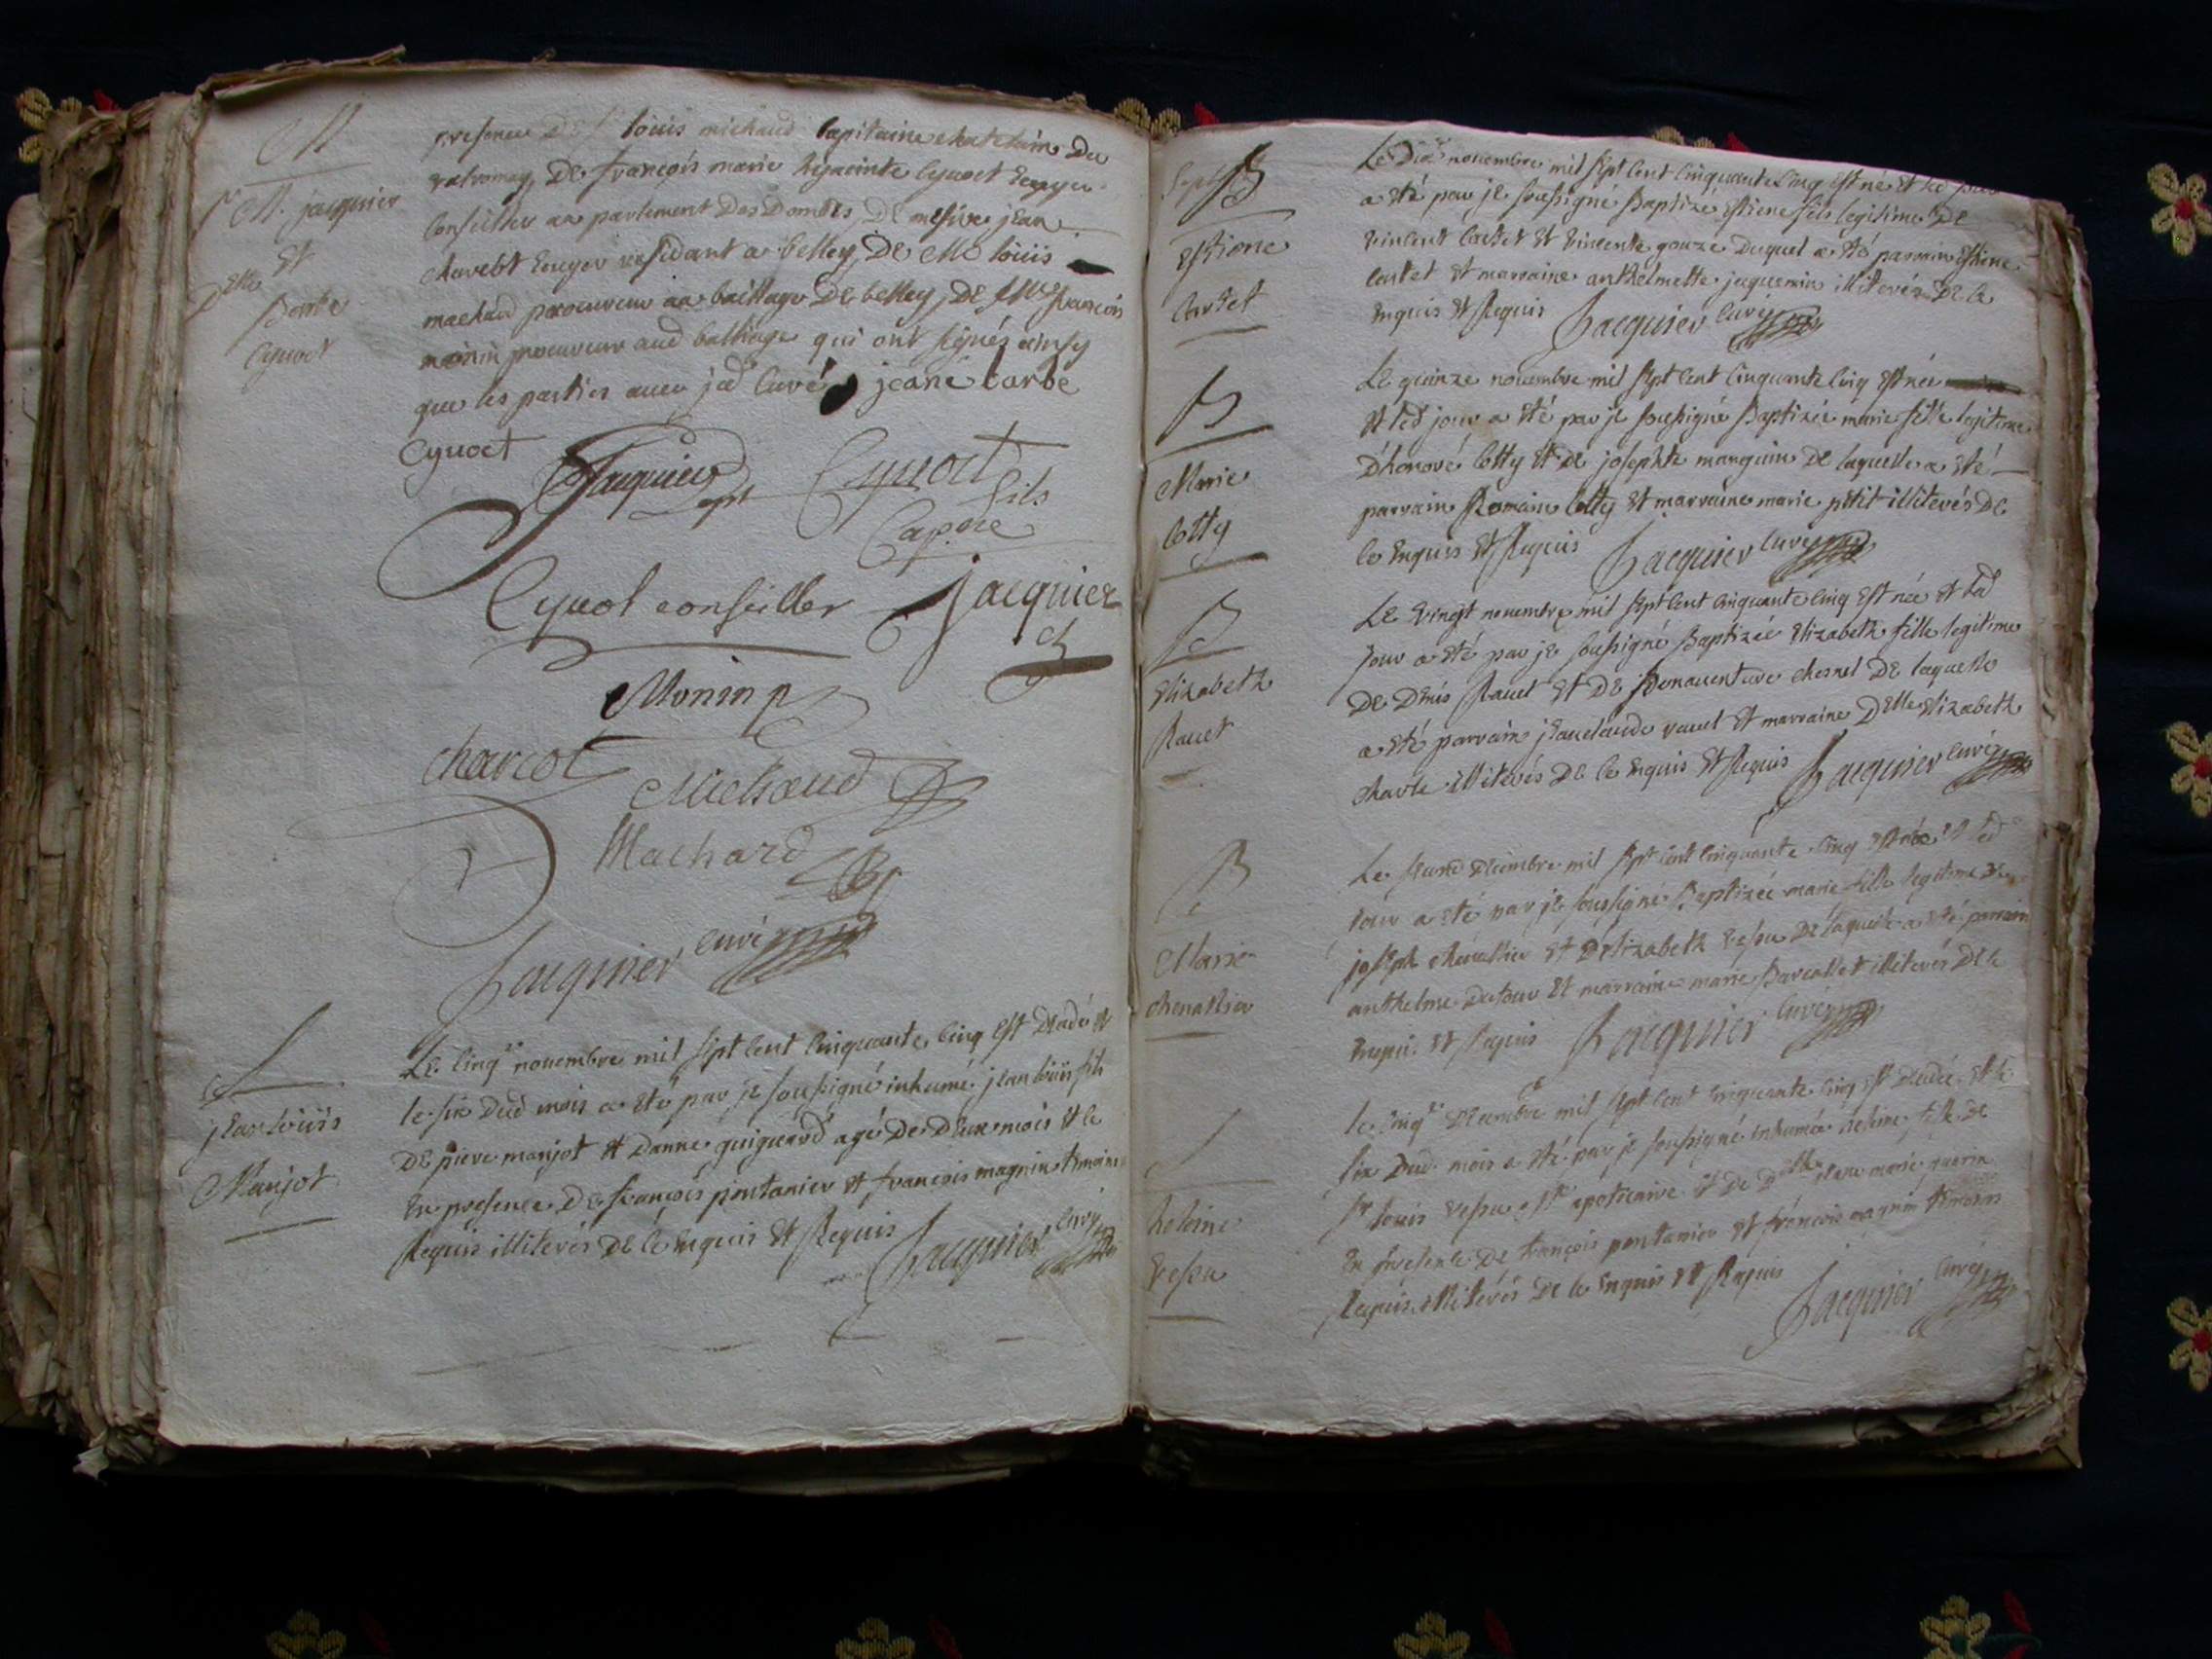 M
presence De Sr louis michaud Capitaine chatelain Du
valromey, De françois marie hyacinte Cyuoct Ecuyer
Sr M. jacquier
Conseiller au parlement Des Dombes, De messire jean
Et
Ecuyer residant a belley, De Me louis
Delle
machard procureur au bailliage De belley, De Me francois
Barbe
monin procureur aud bailliage qui ont signés ainsy
Cyuoct
que les parties avec jed Curé jeane barbe
Cyuoct
Jacquier
Cyuoct fils
Cyuoct conseiller
jacquier
Monin p
charcot
Michaud
Machard
Jacquier curé
Le Cinqe novembre mil sept Cent Cinquante Cinq Est Decedé Et
le six Dud mois a Eté par je soussigné inhumé jean louis fils
jean louis
De piere manjot Et Danne guiguard agé De Deux mois Et le
Manjot
En presence De francois pontanier Et francois magnin temoins
Requis illiterés De Ce Enquis Et Requis Jacquier Curé
B
Le Dixe novembre mil sept Cent Cinquante Cinq Est né Et led jour
a Eté par je soussigné Baptizé Estiene fils legitime De
Estiene
vincent Cortet Et vincente gouze Duquel a Eté parrain Estiene
Cortet
Cortet Et marraine anthelmette jaquemin illiterés De Ce
Enquis Et Requis Jacquier Curé
Le quinze novembre mil sept Cent Cinquante Cinq Est née
B
Et led jour a Eté par je soussigné Baptizée marie fille legitime
D'honoré Cotty Et De josephte manguin De laquelle a Eté
Marie
parrain Romain Cotty Et marraine marie petit illiterés De
Cotty
Ce Enquis Et Requis Jacquier Curé
Le vingt novembre mil sept Cent Cinquante Cinq Est née Et led
B
jour a Eté par je soussigné Baptizée Elizabeth fille legitime
Elizabeth
De Denis Ravet Et De Bonaventure chesnel De laquelle
Ravet
a Eté parrain jeanclaude ravet Et marraine Delle Elizabeth
charle illiterés De Ce Enquis Et Requis Jacquier Curé
Le second Decembre mil sept Cent Cinquante Cinq Est née Et led
B
jour a Eté par je soussigné Baptizée marie fille legitime De
Marie
joseph chenallier Et D'elizabeth vepu De laquelle a Eté parrain
chenallier
anthelme Dutour Et marraine marie illiterés De Ce
Enquis Et Requis Jacquier Curé
Le Cinqe Decembre mil sept Cent Cinquante Cinq Est Decedée Et le
six Dud mois a Eté par je soussigné inhumée helaine fille De
helaine
Sr louis vepu apoticaire Et De Delle jeane marie guerin
vepu
En presence De françois pontanier Et françois magnin temoins
Requis illiterés De Ce Enquis Et Requis Jacquier Curé